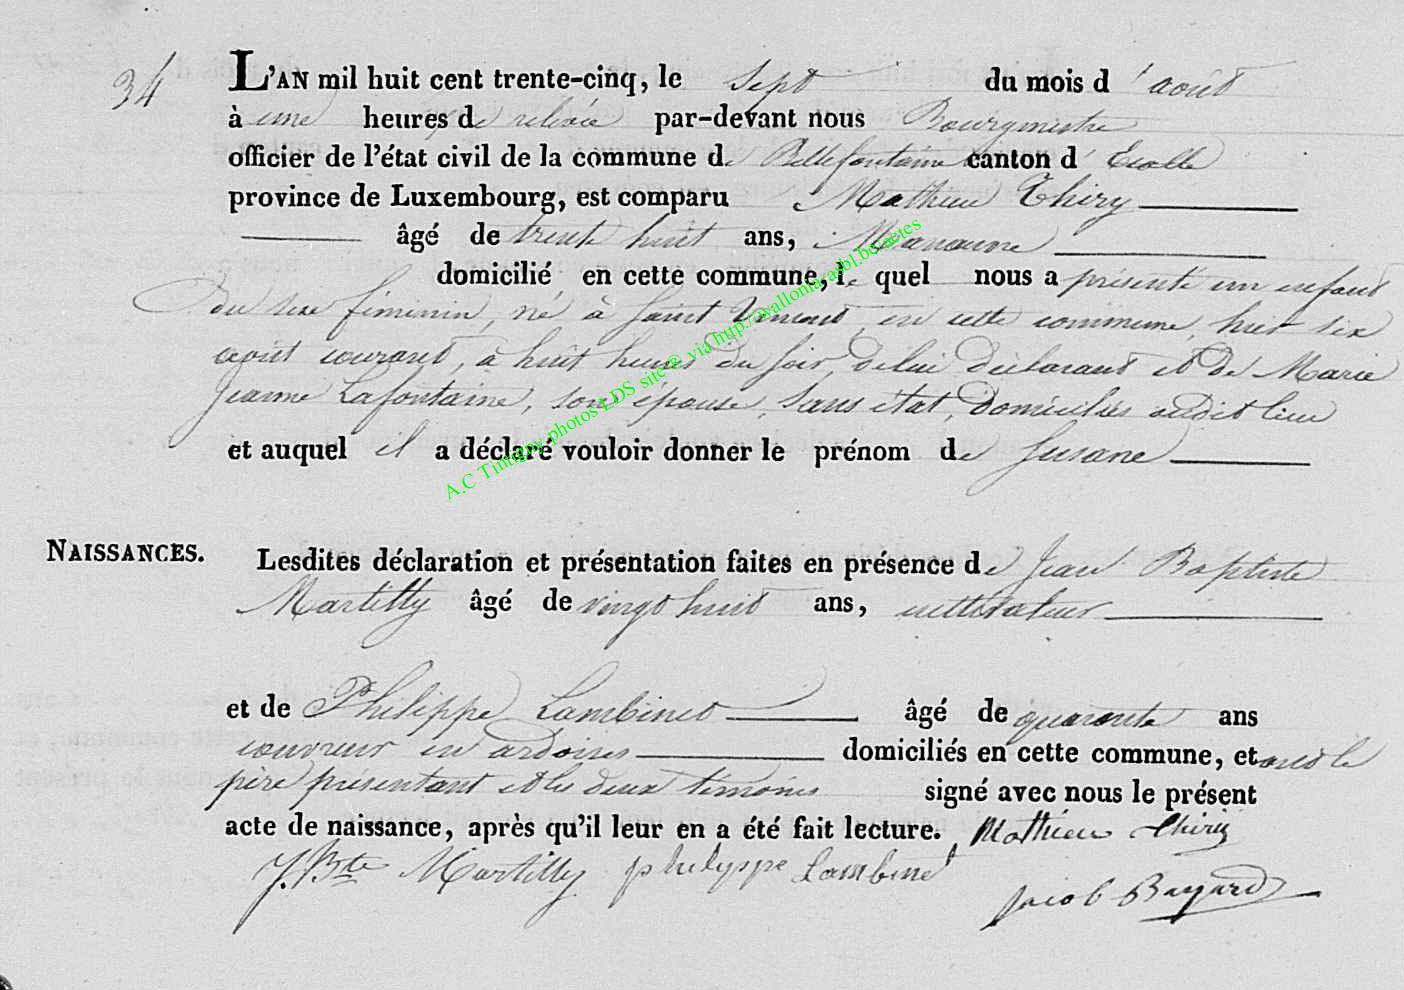 34
L'AN mil huit cent trente-cinq, le Sept du mois d'août
à une heures de relevée par-devant nous Bourgmestre
officier de l'état civil de la commune de Bellefontaine canton d'Etalle
province de Luxembourg, est comparu Mathieu Thiry
âgé de trente huit ans, Manœuvre
domicilié en cette commune, le quel nous a présenté un enfant
du sexe féminin, né à Saint Vincent, en cette commune, hier six
août courant, à huit heures du soir, de lui déclarant et de Marie
Jeanne Lafontaine, son épouse, Sans état, domiciliés audit lieu
et auquel il a déclaré vouloir donner le prénom de Susane
A.C Tintigny photos LDS site @ via http://wallonia.asbl.be/actes
NAISSANCES.
Lesdites déclaration et présentation faites en présence de Jean Baptiste
Martilly âgé de vingt huit ans, cultivateur
et de Philippe Lambinet âgé de quarante ans
couvreur en ardoises domiciliés en cette commune, et ont le
père présentant et les deux témoins signé avec nous le présent
acte de naissance, après qu'il leur en a été fait lecture. Mathieu Thiry
J. Bte Martilly philyppe Lambinet
Jacob Bayard